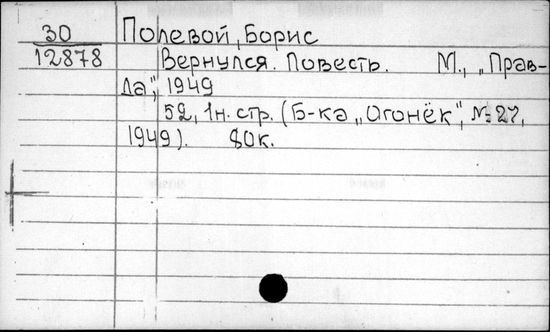 30
12878
Полевой, Борис
Вернулся. Повесть. М., „Прав-
да", 1949
52, 1н. стр. (Б-ка „Огонёк", № 27,
1949). 80к.